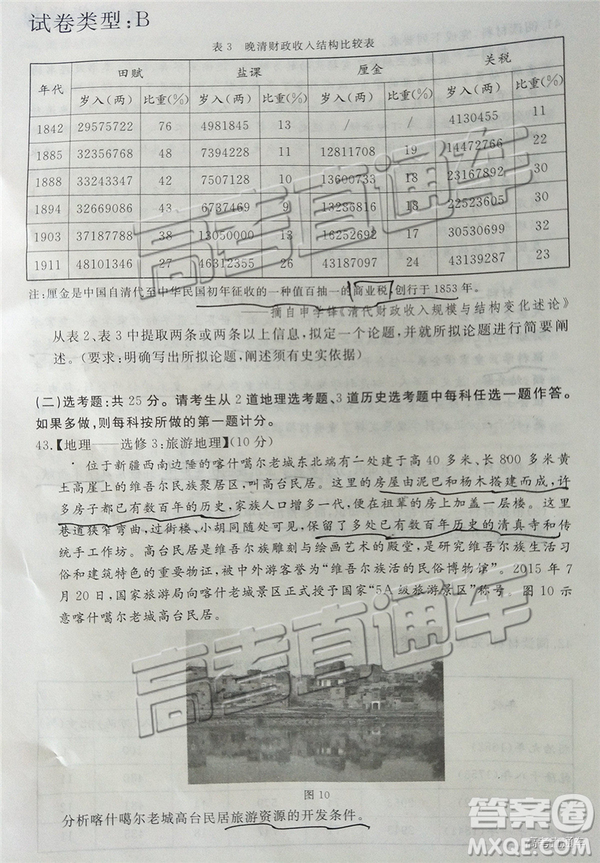 试卷类型:B
表3 晚清财政收入结构比较表
年代 田赋 盐课 厘金 关税
岁入(两) 比重(%) 岁入(两) 比重(%) 岁入(两) 比重(%) 岁入(两) 比重(%)
1842 29575722 76 4981845 13 / / 4130455 11
1885 32356768 48 7394228 11 12811708 19 14472766 22
1888 33243347 42 7507128 10 13600733 18 23167892 30
1894 32669086 43 6737469 9 13286816 18 22523605 30
1903 37187788 38 13050000 13 16252692 17 30530699 32
1911 48101346 27 46312355 26 43187097 24 43139287 23
注:厘金是中国自清代至中华民国初年征收的一种值百抽一的商业税,创行于1853年。
——摘自申学锋《清代财政收入规模与结构变化述论》
从表2、表3中提取两条或两条以上信息,拟定一个论题,并就所拟论题进行简要阐
述。(要求:明确写出所拟论题,阐述须有史实依据)
(二)选考题:共25分。请考生从2道地理选考题、3道历史选考题中每科任选一题作答。
如果多做,则每科按所做的第一题计分。
43.【地理——选修3:旅游地理】(10分)
位于新疆西南边陲的喀什噶尔老城东北端有一处建于高40多米、长800多米黄
土高崖上的维吾尔民族聚居区,叫高台民居。这里的房屋由泥巴和杨木搭建而成,许
多房子都已有数百年的历史,家族人口增多一代,便在祖辈的房上加盖一层楼。这里
巷道狭窄弯曲,过街楼、小胡同随处可见,保留了多处已有数百年历史的清真寺和传
统手工作坊。高台民居是维吾尔族雕刻与绘画艺术的殿堂,是研究维吾尔族生活习
俗和建筑特色的重要物证,被中外游客誉为“维吾尔族活的民俗博物馆”。2015年7
月20日,国家旅游局向喀什老城景区正式授予国家“5A级旅游景区”称号 图10示
意喀什噶尔老城高台民居。
图10
分析喀什噶尔老城高台民居旅游资源的开发条件。
高考直通车
高考直通车
答案圈
MXQE.COM